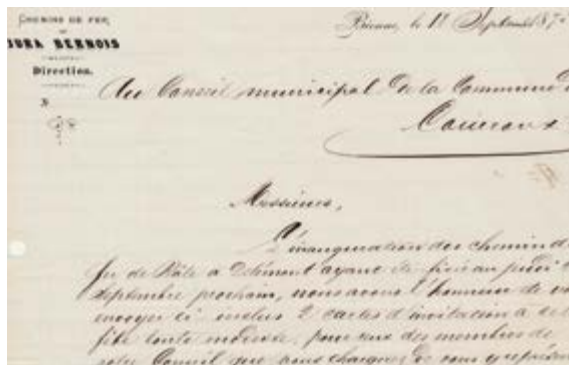 CHEMINS DE FER
JURA BERNOIS
Direction.
Bienne, le 11 Septembre 187
N
Au Conseil municipal de la Commune d
Messieurs,
L'inauguration des chemin d
fer de Bâle à Delémont ayant été fixé au jeudi
septembre prochain, nous avons l'honneur de vo
envoyer ci inclus 2 cartes d'invitation à cet
fête toute modeste, pour eux des membres de
votre Conseil que vous chargez de vous y représen